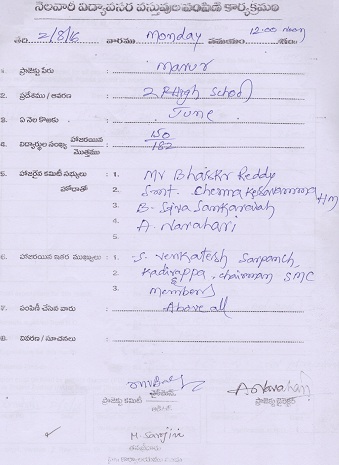 నెలవారీ విద్యావసర వస్తువుల పంపిణీ కార్యక్రమం
తేది 2/8/6 వారము Monday సమయం 12:00 noon
1. ప్రాజెక్టు పేరు Marur
2. ప్రదేశము / ఆవరణ High School
3. ఏ నెల కొరకు June
4. విద్యార్థుల సంఖ్య హాజరయిన 150
మొత్తము 182
5. హాజరైన కమిటీ సభ్యులు 1. Mr Bhaskr Reddy
హోదాతో 2. Smt. Chenna Kesavamma HM
3. B. Siva Sankaraiah
4. A. Narahari
5.
6. హాజరయిన ఇతర ముఖ్యులు 1. S. Venkatesh Sarpanch
2. Kadirappa, Chairman SMC
3. Members
7. పంపిణీ చేసిన వారు Above all
8. వివరణ / సూచనలు
A. Narahari
ప్రాజెక్టు కమిటీ
ప్రాజెక్టు డైరెక్టర్
M. Sarojini